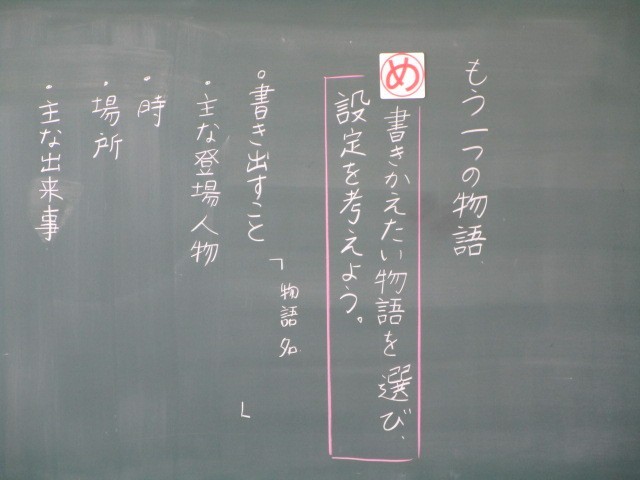 もう一つの物語
め
書きかえたい物語を選び、
設定を考えよう。
○書き出すこと
「物語名 」
・主な登場人物
・時
・場所
・主な出来事